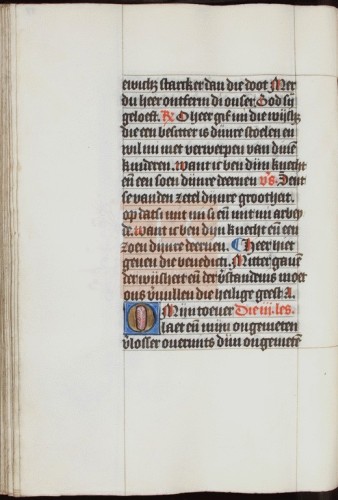 ewich starcker dan die doot Mer
du heer ontferm di onser God sy
geloeft. R O heer gif mi die wijsh
die een besitter is dijnre stoelen en
wil mi niet verwerpen van dinē
kinderen. want ic ben dijn knecht
eñ een soen dijnre deernen vs. Sent
se van den zetel dijnre grootheit.
op dat si mit mi si eñ mit mi arbey
de. want ic ben dijn knecht eñ een
zoen dijnre deernen. heer hiet
geuen die benedich. Mitter gauē
der wijsheit eñ der vstandenis moet
ons vuullen die heilige geest A.
O Mijn toeuer Die iij. les.
laet eñ mijn ongemeten
vlosser ouermits dijn ongemetē